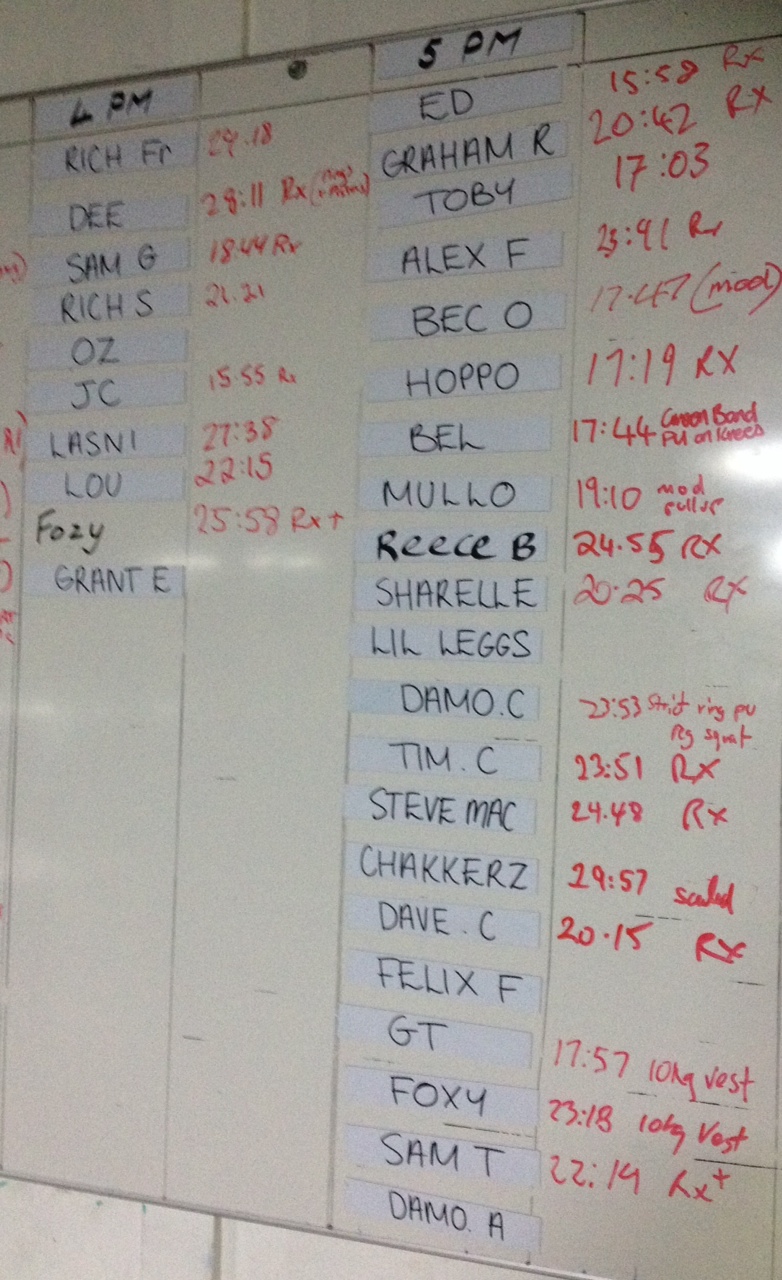 4 PM
RICH Fr 29.18
DEE 28:11 Rx
SAM G 18:44 Rx
RICH S 21.21
OZ
JC 15:55 Rx
LASNI 27:38
LOU 22:15
Fozy 25:58 Rx+
GRANT E
5 PM
ED 15:58 Rx
GRAHAM R 20:42 RX
TOBY 17:03
ALEX F Rx
BEC O 17:47 (mod)
HOPPO 17:19 RX
BEL 17:44 Green Band
PU on Knees
MULLO 19:10 mod
pullup
Reece B 24.55 RX
SHARELLE 20:25 RX
LIL LEGGS
DAMO.C 23:53 Strict ring pu
squat
TIM. C 23:51 RX
STEVE MAC 24.48 Rx
CHAKKERZ 29:57 scaled
DAVE. C 20.15 Rx
FELIX F
GT 17:57 10kg vest
FOXY 23:18 10kg Vest
SAM T 22:14 Rx+
DAMO. A